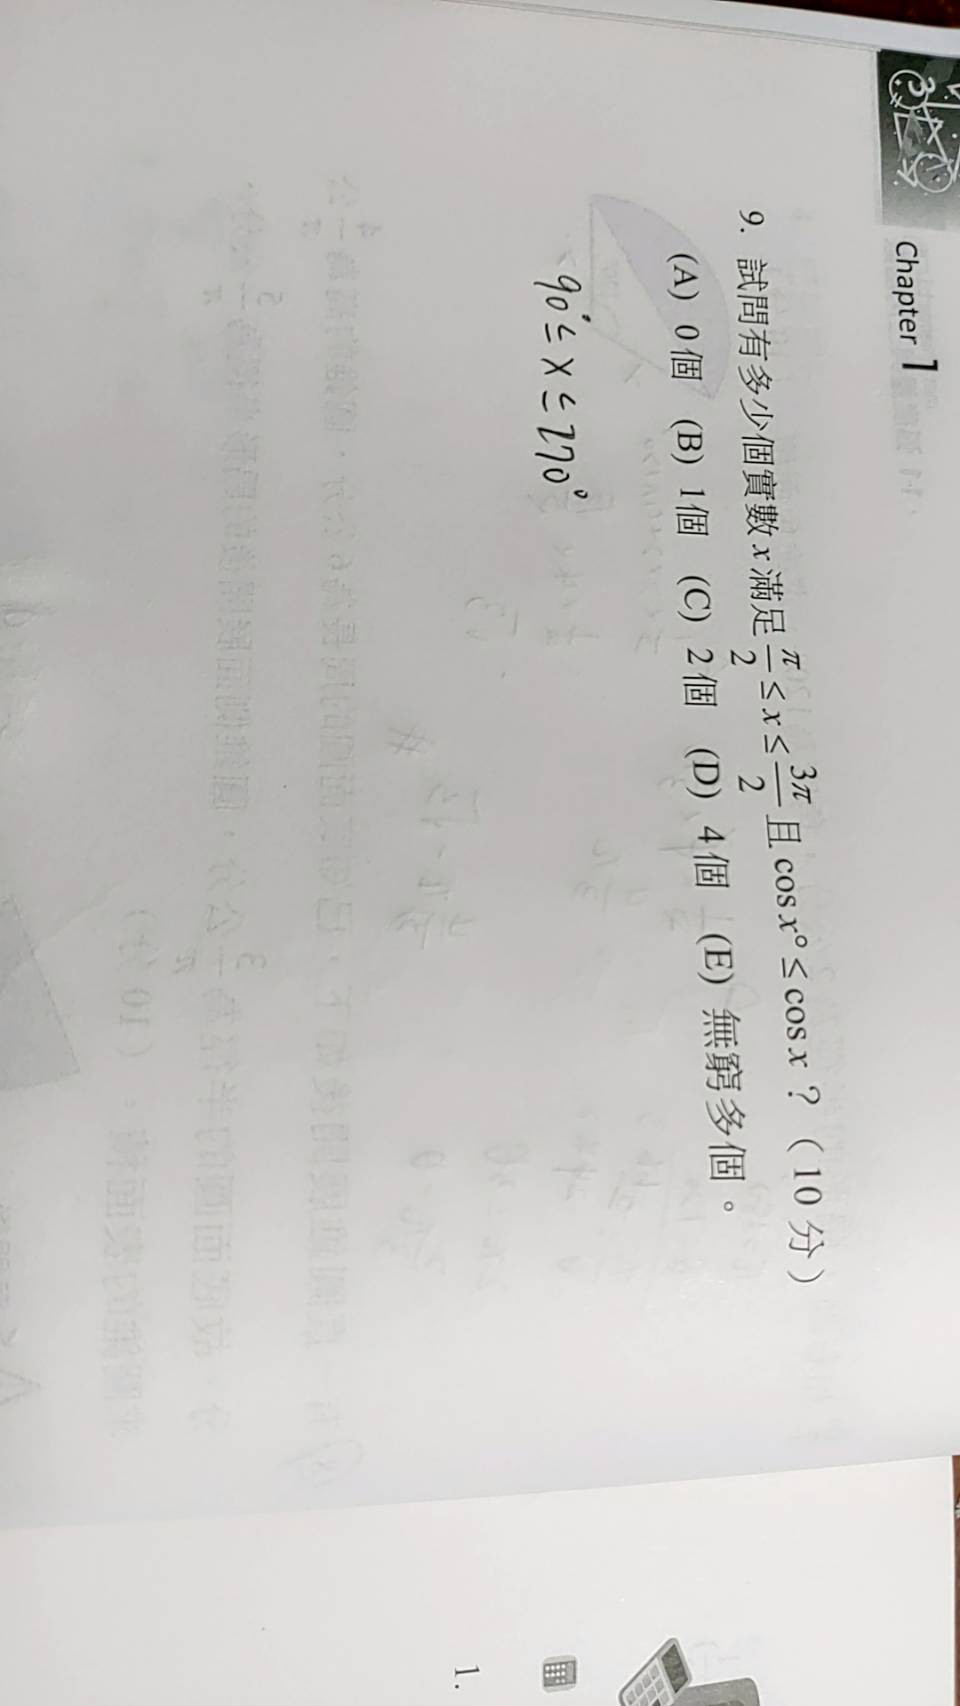 Chapter 1
9. 試問有多少個實數 x 滿足 π/2 ≤ x ≤ 3π/2 且 cos x° ≤ cos x？（10 分）
(A) 0個 (B) 1個 (C) 2個 (D) 4個 (E) 無窮多個。
90° ≤ x ≤ 270°
1.